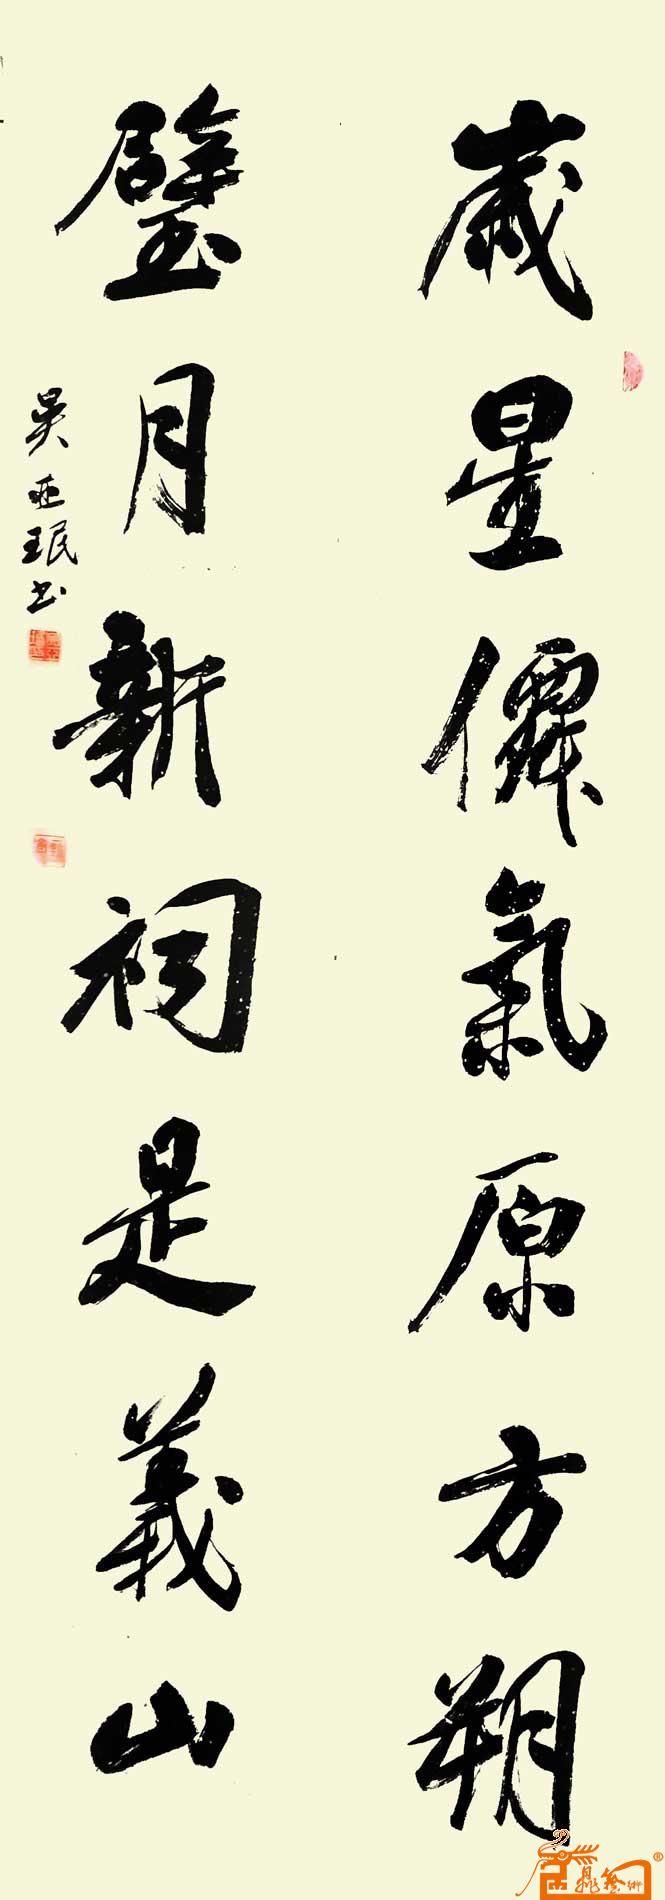 歲星僊氣原方朔
璧月新祠是義山
吴亚珉书